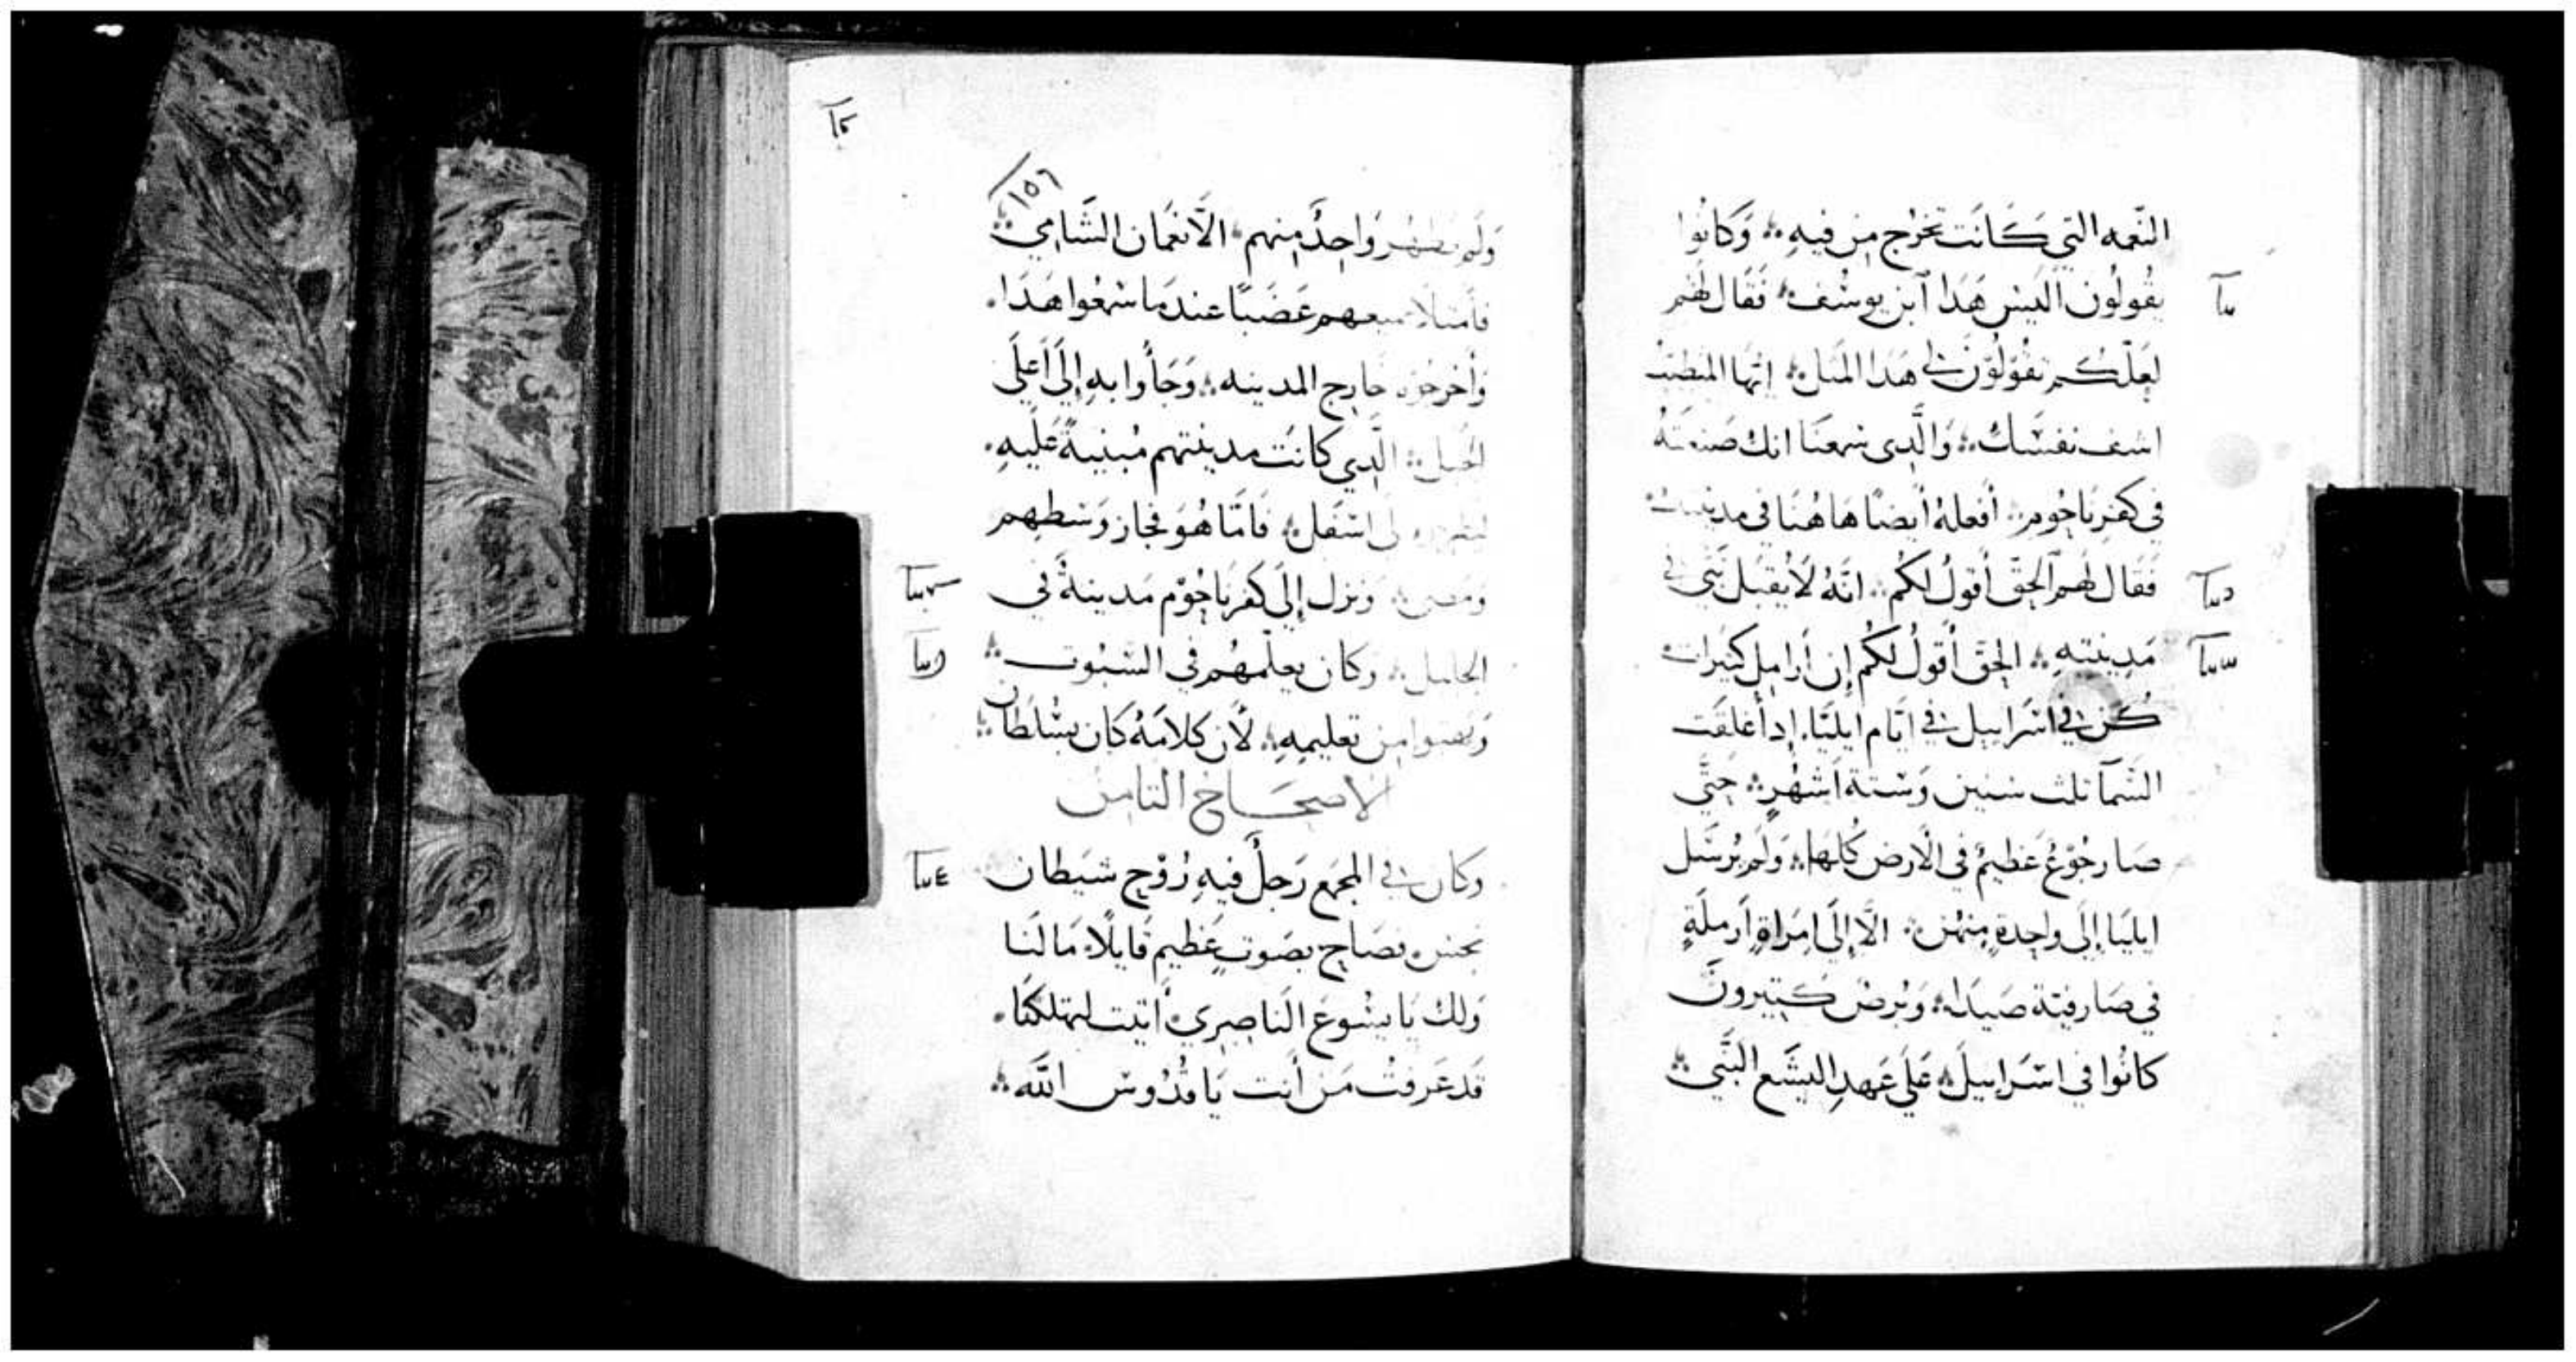 النّعمه التي كَانَت تخرُج مِن فيهِ ؞ وَكانوُا
يقُولوُن اليَس هَدَا آبن يوسُف ؞ فَقَال لهُم
لعَلّكُم تقُولوُن لي هَدا المَثل ؞ ايّهَا المتطبّب
اشف نفسَك ؞ وَالَّدى سَمعنَا انك صَنعتَهُ
في كفرنَاحُوم ؞ أفعلهُ أيضًا هَاهُنَا في مدينتك
فَقال لهُم آلحَق أقولُ لكمُ ؞ انّهُ لاَيُقبَل نَبّي في
مَدِينتِهِ ؞ الحَقّ أقولُ لكُم إن أرَامِل كثيرَات
كُنّ في اسرَاييل في ايّام ايليّا . إد أُغلقَت
السّمآ ثلث سَنين وَستة اشهُرٍ ؞ حَتّى
صَار جُوعٌ عَظيمٌ في الأرض كُلهَا ؞ وَلم يُرسَل
ايليَا إلَى واحِدةٍ مِنهُن ؞ الاّ إلَى امَراةٍ أرملَةٍ
في صَارفيّة صَيدَا ؞ وَبُرصٌ كَثيرونَ
كانُوا في اسَرَاييلَ ؞ عَلَى عَهدِ اليشَع النَبّي ؞
١٥٦
وَلَم يطهُر وَاحِدٌ مِنهم ؞ الاّ نعمَان الشَامِي ؞
فأمتلأ جميعهم غَضَبًا عندَما سَمعُوا هَدَا .
وَأخرجُوه خارِج المدينه ؞ وَجَأُوا بهِ إلَى اَعلَى
الجَبل ؞ الَّدِي كانَت مدينتهم مُبنيةً عَليهِ .
اسفَل ؞ فَامَّا هُوَ فجاز وَسَطهِم
ومَضى ؞ وَنزل إلَى كَفرنَاحُوم مَدينةٌ في
الجَليل ؞ وَكان يعَلّمهُم في السّبُوت ؞
وَبهتوا مِن تعليمِهِ ؞ لأَن كلاَمَهُ كَان بسُلطَان ؞
الاصحَاح الثامن
وَكان في المجمَع رَجلٌ فيهِ رُوْح شَيطان
نجس ؞ فصَاح بصَوتٍ عَظيم قايلاً ؞ مَا لَنَا
وَلك يَا يسُوعَ النَاصِرِي ؞ أتيت لتهلكنَا .
قد عَرفتُ مَن أنت يَا قُدُوس اللَّه ؞